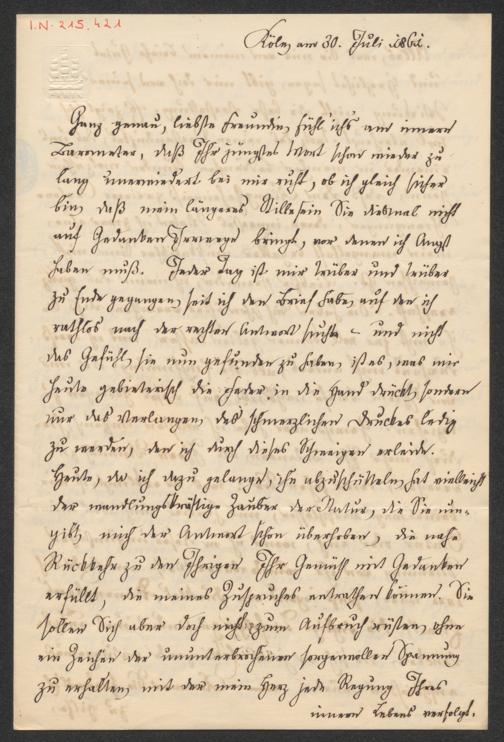 I.N. 215.421
Köln, am 30. Juli 1861.
Ganz genau, liebste Freundin, fühl' ich's am innern
Barometer, daß Ihr jüngstes Wort schon wieder zu
lang unerwiedert bei mir ruht, ob ich gleich sicher
bin, daß mein längeres Stillesein Sie diesmal nicht
auf Gedanken bringt, vor denen ich Angst
haben muß. Jeder Tag ist mir trüber und trüber
zu Ende gegangen, seit ich den Brief habe, auf den ich
rathlos nach der rechten Antwort suchte – und nicht
das Gefühl, sie nun gefunden zu haben, ist es, was mir
heute gebieterisch die Feder in die Hand drückt, sondern
nur das Verlangen, des schmerzlichen Druckes ledig
zu werden, den ich durch dieses Schweigen erleide.
Heute, da ich dazu gelange, ihn abzuschütteln, hat vielleicht
der wandlungskräftige Zauber der Natur, die Sie um-
gibt, mich der Antwort schon überhoben, die nahe
Rückkehr zu den Ihrigen Ihr Gemüth mit Gedanken
erfüllt, die meines Zuspruches entrathen können. Sie
sollen Sich aber doch nicht zum Aufbruch rüsten, ohne
ein Zeichen der ununterbrochenen sorgenvollen Spannung
zu erhalten, mit der mein Herz jede Regung Ihres
innern Lebens verfolgt.